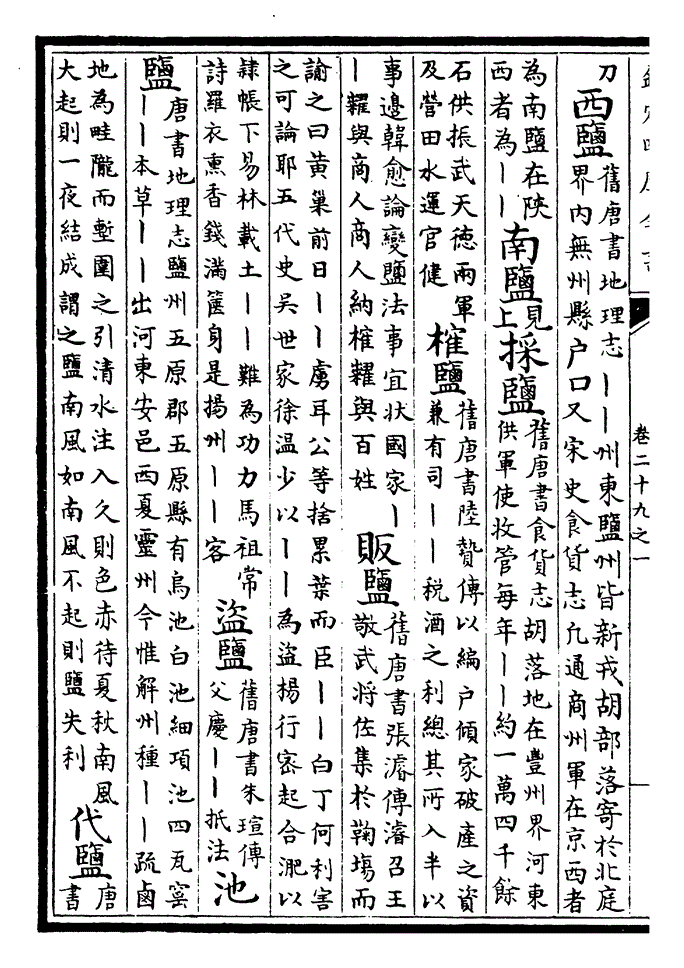 欽定四庫全書
卷二十九之一
刀
西鹽
舊唐書地理志丨丨州東鹽州皆新戎胡部落寄於北庭
界内無州縣户口又宋史食貨志凡通商州軍在京西者
為南鹽在陜
西者為丨丨
南鹽
見
上
採鹽
舊唐書食貨志胡落地在豐州界河東
供軍使收管每年丨丨約一萬四千餘
石供振武天德兩軍
及營田水運官健
榷鹽
舊唐書陸贄傳以編户傾家破産之資
兼有司丨丨税酒之利總其所入半以
事邊韓愈論變鹽法事宜狀國家丨
丨糶與商人商人納榷糶與百姓
販鹽
舊唐書張濬傳濬召王
敬武将佐集於鞠塲而
諭之曰黄巢前日丨丨虜耳公等捨累葉而臣丨丨白丁何利害
之可論耶五代史吳世家徐温少以丨丨為盜楊行密起合淝以
隸帳下易林載土丨丨難為功力馬祖常
詩羅衣熏香錢滿篋身是揚州丨丨客
盜鹽
舊唐書朱瑄傳
父慶丨丨抵法
池
鹽
唐書地理志鹽州五原郡五原縣有烏池白池細項池四瓦窰
丨丨本草丨丨出河東安邑西夏靈州今惟解州種丨丨疏鹵
地為畦隴而塹圍之引清水注入久則色赤待夏秋南風
大起則一夜結成謂之鹽南風如南風不起則鹽失利
代鹽
唐
書